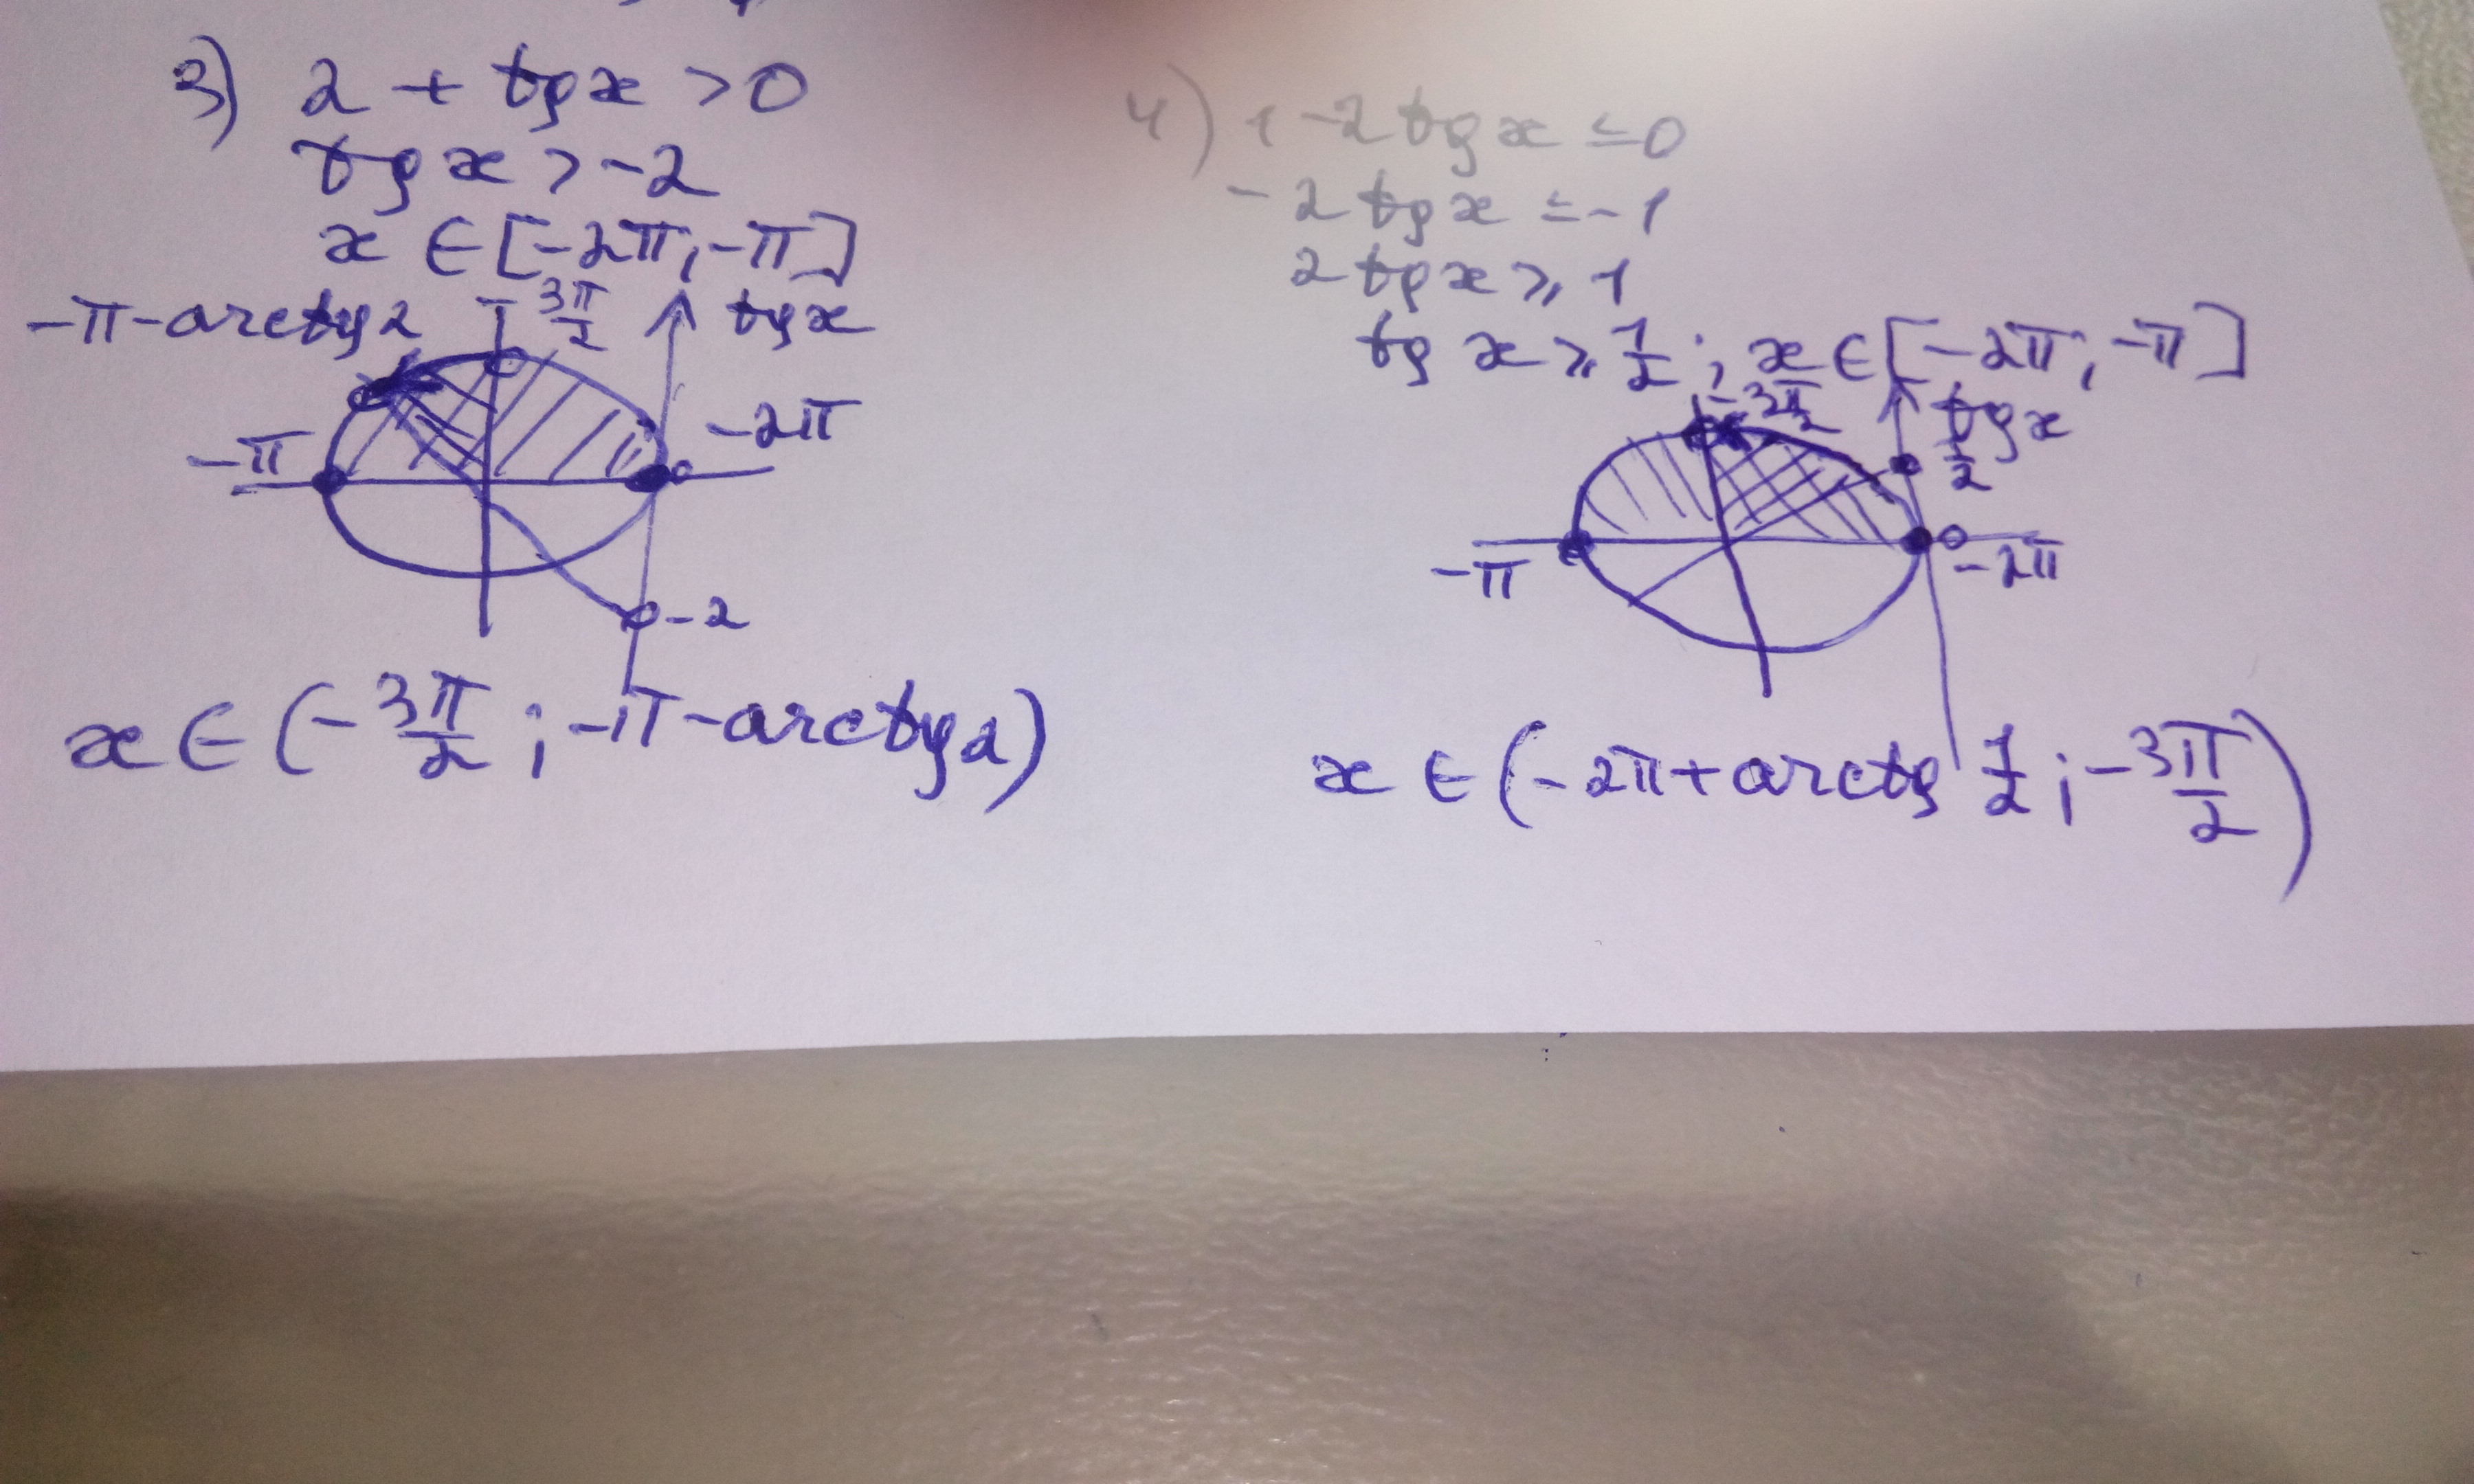 3) 2 + tg x > 0
tg x > -2
x ∈ [-2π; -π]
-π-arctg 2
3π/2
tg x
-π
-2π
-2
x ∈ (-3π/2 ; -π-arctg 2)
4) 1 -2 tg x ≤ 0
-2 tg x ≤ -1
2 tg x ≥ 1
tg x ≥ 1/2 ; x ∈ [-2π; -π]
-3π/2
tg x
1/2
-π
-2π
x ∈ (-2π+arctg 1/2 ; -3π/2)